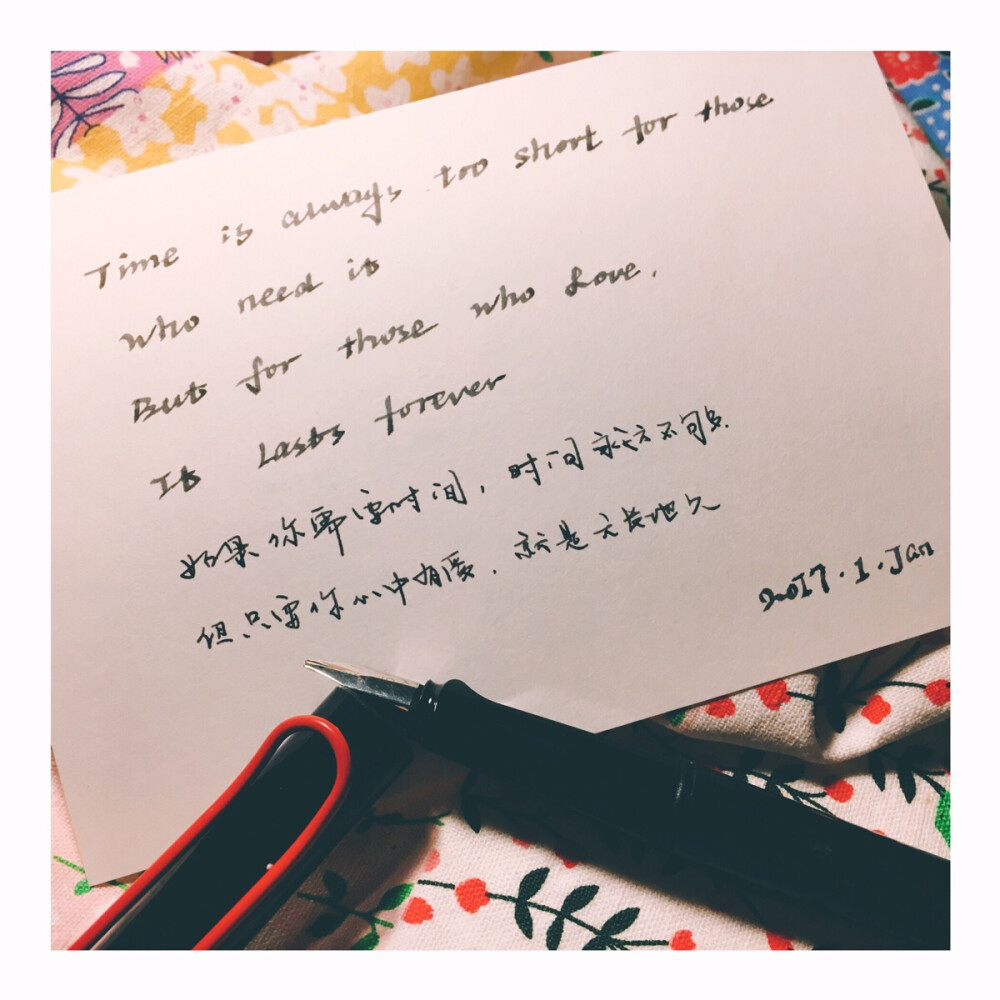 Time is always too short for those
who need it
But for those who Love.
It Lasts forever
如果你需要时间，时间永远不够.
但只要你心中有爱.就是天长地久
2017.1.Jan